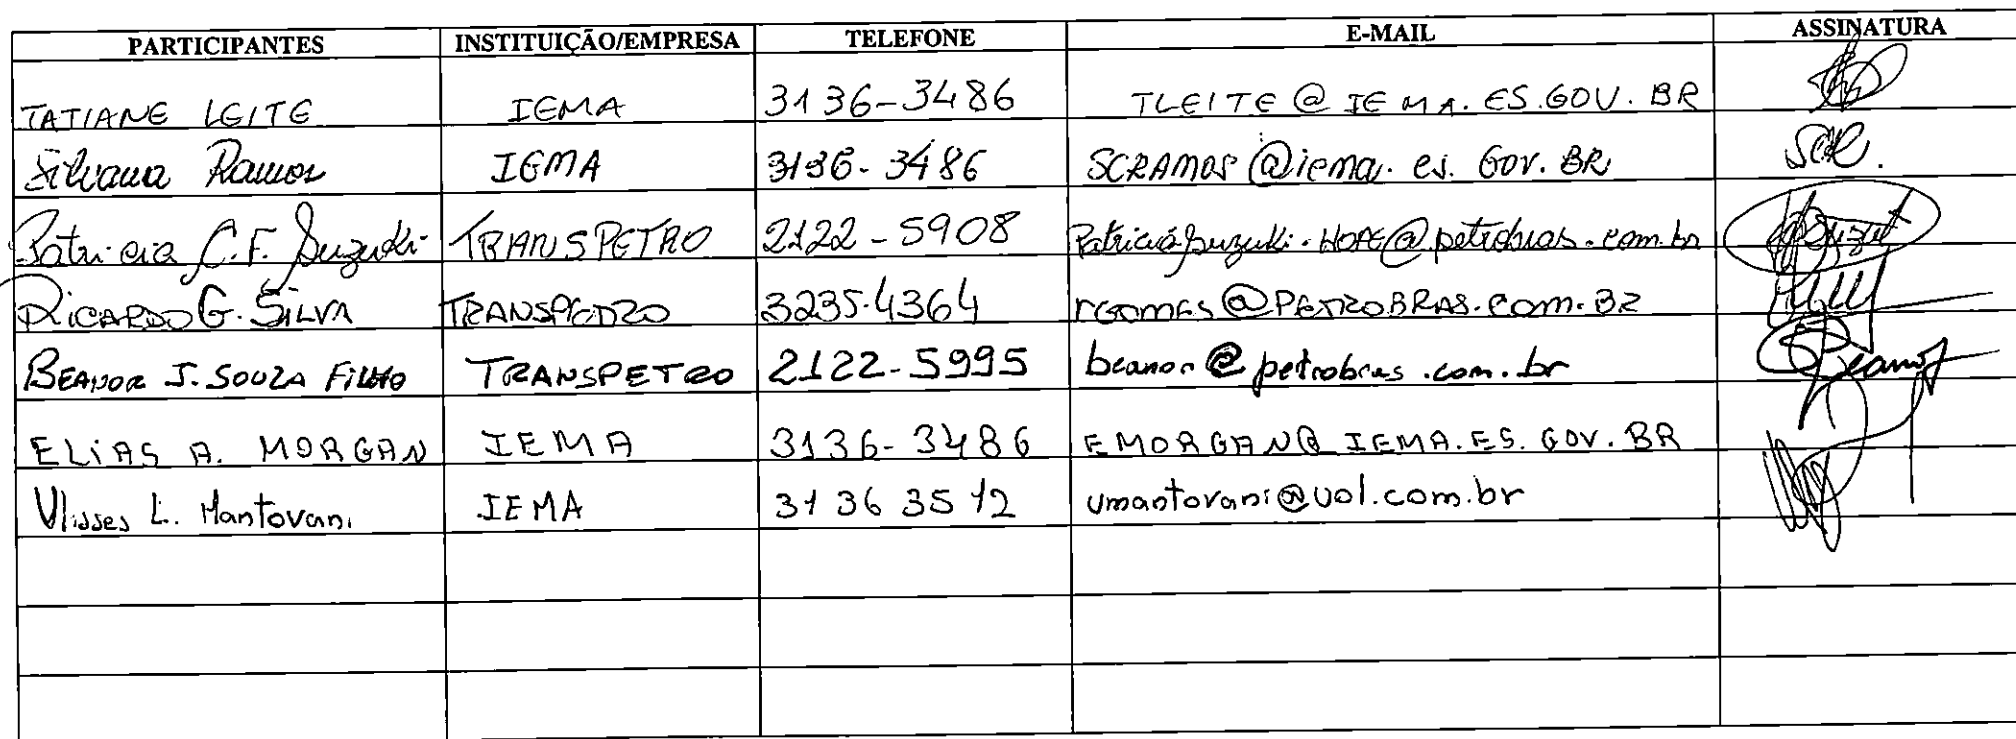 PARTICIPANTES INSTITUIÇÃO/EMPRESA TELEFONE E-MAIL ASSINATURA
TATIANE LEITE IEMA 3136-3486 TLEITE@IEMA.ES.GOV.BR
Silvana Ramos IEMA 3136-3486 SCRAMOS@iema.es.Gov.BR SCR.
Patricia C.F. Suzuki TRANSPETRO 2122-5908 PatriciaSuzuki.HOPE@petrobras.com.br
RICARDO G. SILVA TRANSPETRO 3235.4364 rGOMES@PETROBRAS.com.BR
BEANOR J. SOUZA FILHO TRANSPETRO 2122-5995 beanor@petrobras.com.br Beanor
ELIAS A. MORGAN IEMA 3136-3486 EMORGAN@IEMA.ES.GOV.BR
Ulisses L. Mantovani IEMA 3136 3512 umantovani@uol.com.br